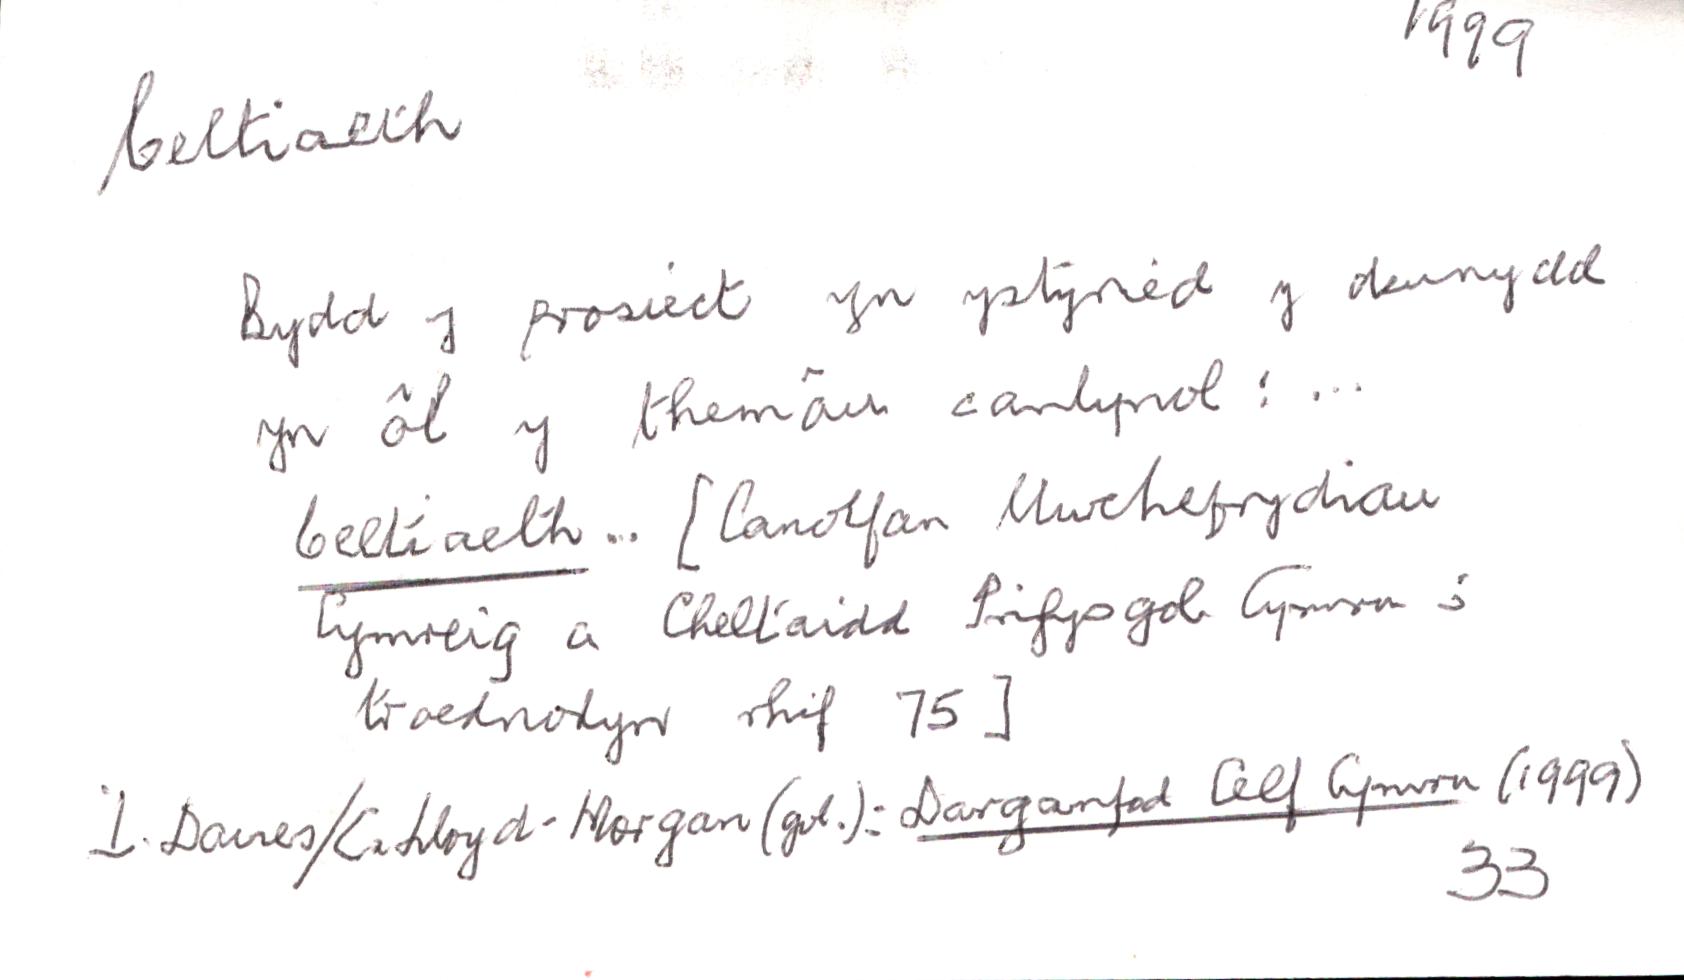 1999
Celtiaeth
Bydd y prosiect yn ystyried y deunydd
yn ôl y themâu canlynol : ...
Celtiaeth ... [Canolfan Uwchefrydiau
Cymreig a Cheltaidd Prifysgol Cymru ;
troednodyn rhif 75]
I. Davies/C. Lloyd-Morgan (gol.): Darganfod Celf Cymru (1999)
33